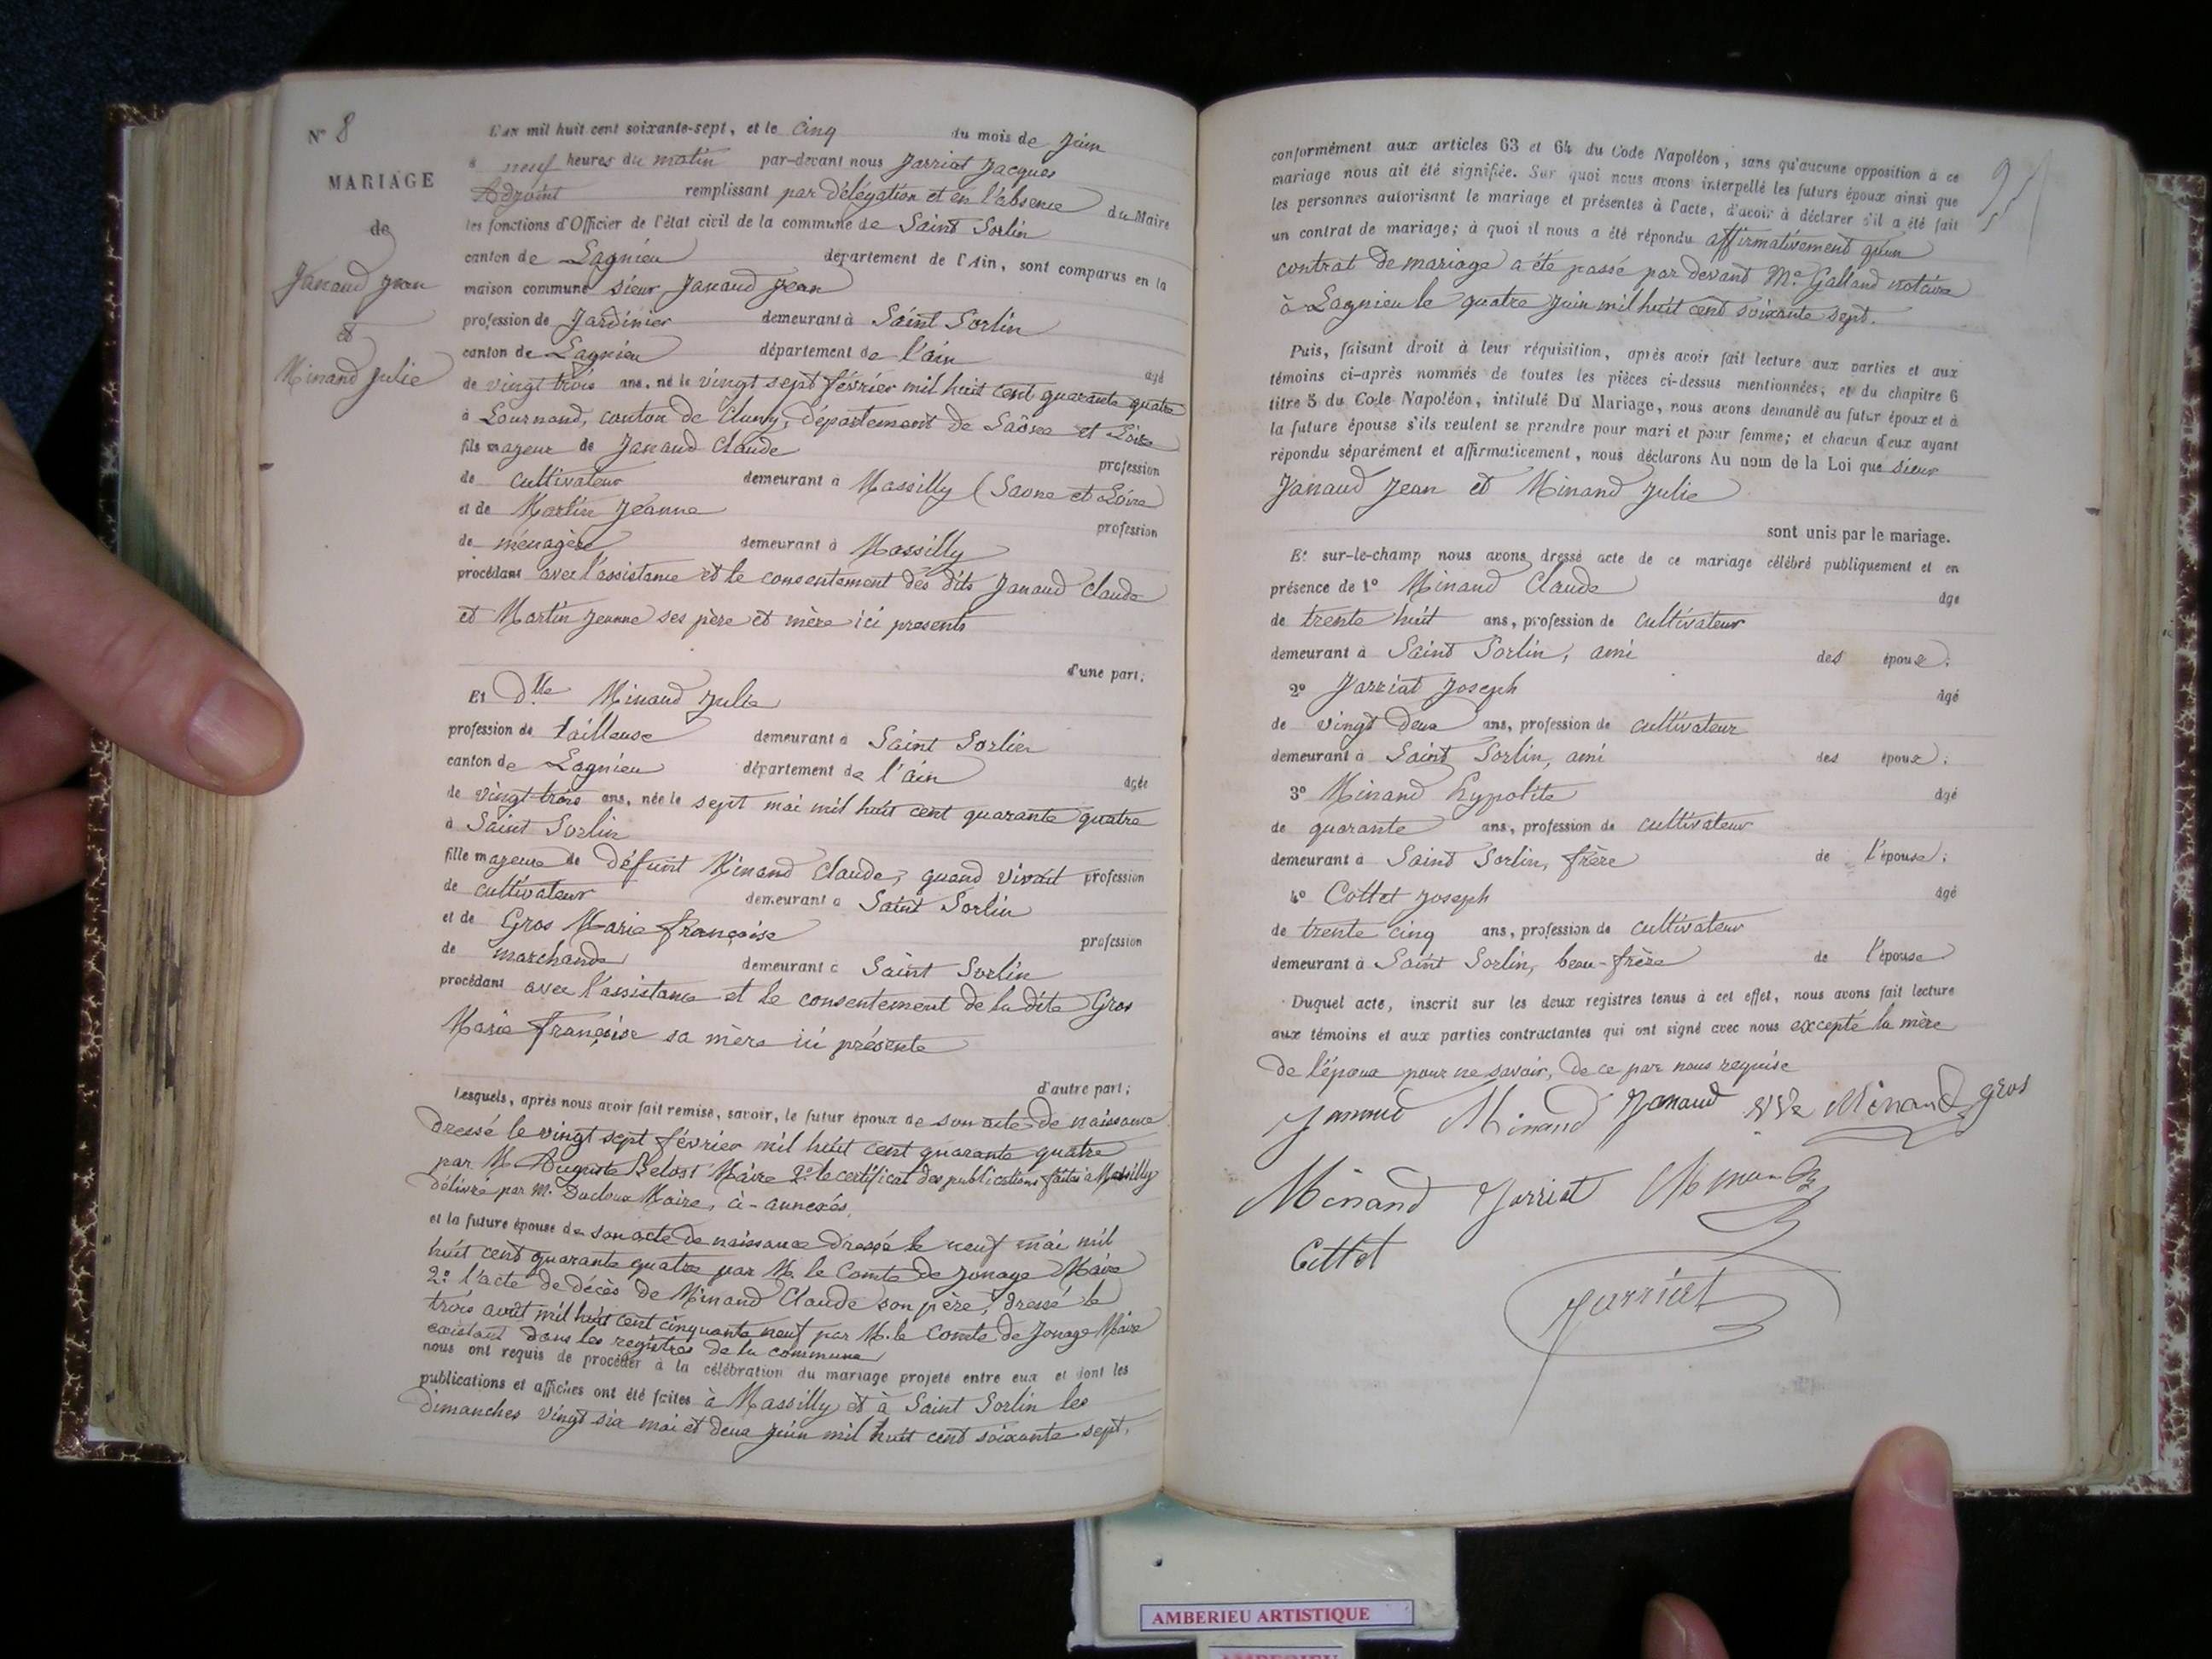 N° 8
MARIAGE
de
Janaud Jean
et
Minand Julie
L'an mil huit cent soixante-sept, et le cinq du mois de Juin
à neuf heures du matin par-devant nous Jarriat Jacques
Adjoint remplissant par délégation et en l'absence du Maire
les fonctions d'Officier de l'état civil de la commune de Saint Sorlin
canton de Lagnieu département de l'Ain, sont comparus en la
maison commune sieur Janaud Jean
profession de Jardinier demeurant à Saint Sorlin
canton de Lagnieu département de l'ain âgé
de vingt trois ans, né le vingt sept février mil huit cent quarante quatre
à Lournand, canton de Cluny, département de Saône et Loire
fils majeur de Janaud Claude profession
de cultivateur demeurant à Massilly (Saone et Loire)
et de Martin Jeanne profession
de ménagère demeurant à Massilly
procédant avec l'assistance et le consentement des dits Janaud Claude
et Martin Jeanne ses père et mère ici presents
d'une part;
Et Dlle Minand Julie
profession de tailleuse demeurant à Saint Sorlin
canton de Lagnieu département de l'ain âgée
de vingt trois ans, née le sept mai mil huit cent quarante quatre
à Saint Sorlin
fille majeure de défunt Minand Claude, quand vivait profession
de cultivateur demeurant à Saint Sorlin
et de Gros Marie françoise profession
de marchande demeurant à Saint Sorlin
procédant avec l'assistance et le consentement de la dite Gros
Marie françoise sa mère ici présente
d'autre part;
Lesquels, après nous avoir fait remise, savoir, le futur époux de son acte de naissance
dressé le vingt sept février mil huit cent quarante quatre
par M Auguste Belost Maire 2° le certificat des publications faites à Massilly
délivré par M. Ducloux Maire, ci-annexés,
et la future épouse de son acte de naissance dressé le neuf mai mil
huit cent quarante quatre par M. le Comte de Jonage Maire
2° l'acte de décès de Minand Claude son père, dressé le
trois août mil huit cent cinquante neuf par M. le Comte de Jonage Maire
existant dans les registres de la commune
nous ont requis de procéder à la célébration du mariage projeté entre eux et dont les
publications et affiches ont été faites à Massilly et à Saint Sorlin les
dimanches vingt six mai et deux juin mil huit cent soixante sept,
conformément aux articles 63 et 64 du Code Napoléon, sans qu'aucune opposition à ce
mariage nous ait été signifiée. Sur quoi nous avons interpellé les futurs époux ainsi que
les personnes autorisant le mariage et présentes à l'acte, d'avoir à déclarer s'il a été fait
un contrat de mariage; à quoi il nous a été répondu affirmativement qu'un
contrat de mariage a été passé par devant Me Galland notaire
à Lagnieu le quatre Juin mil huit cent soixante sept.
Puis, faisant droit à leur réquisition, après avoir fait lecture aux parties et aux
témoins ci-après nommés de toutes les pièces ci-dessus mentionnées, et du chapitre 6
titre 5 du Code Napoléon, intitulé Du Mariage, nous avons demandé au futur époux et à
la future épouse s'ils veulent se prendre pour mari et pour femme; et chacun d'eux ayant
répondu séparément et affirmativement, nous déclarons Au nom de la Loi que sieur
Janaud Jean et Minand Julie
sont unis par le mariage.
Et sur-le-champ nous avons dressé acte de ce mariage célébré publiquement et en
présence de 1° Minand Claude âgé
de trente huit ans, profession de cultivateur
demeurant à Saint Sorlin, ami des époux;
2° Jarriat Joseph âgé
de vingt deux ans, profession de cultivateur
demeurant à Saint Sorlin, ami des époux;
3° Minand hypolite âgé
de quarante ans, profession de cultivateur
demeurant à Saint Sorlin, frère de l'épouse;
4° Cottet Joseph âgé
de trente cinq ans, profession de cultivateur
demeurant à Saint Sorlin, beau-frère de l'épouse
Duquel acte, inscrit sur les deux registres tenus à cet effet, nous avons fait lecture
aux témoins et aux parties contractantes qui ont signé avec nous excepté la mère
de l'époux pour ne savoir, de ce par nous requise
Janaud Minand Janaud vve Minand gros
Minand Jarriat Minand
Cottet
Jarriat
AMBERIEU ARTISTIQUE